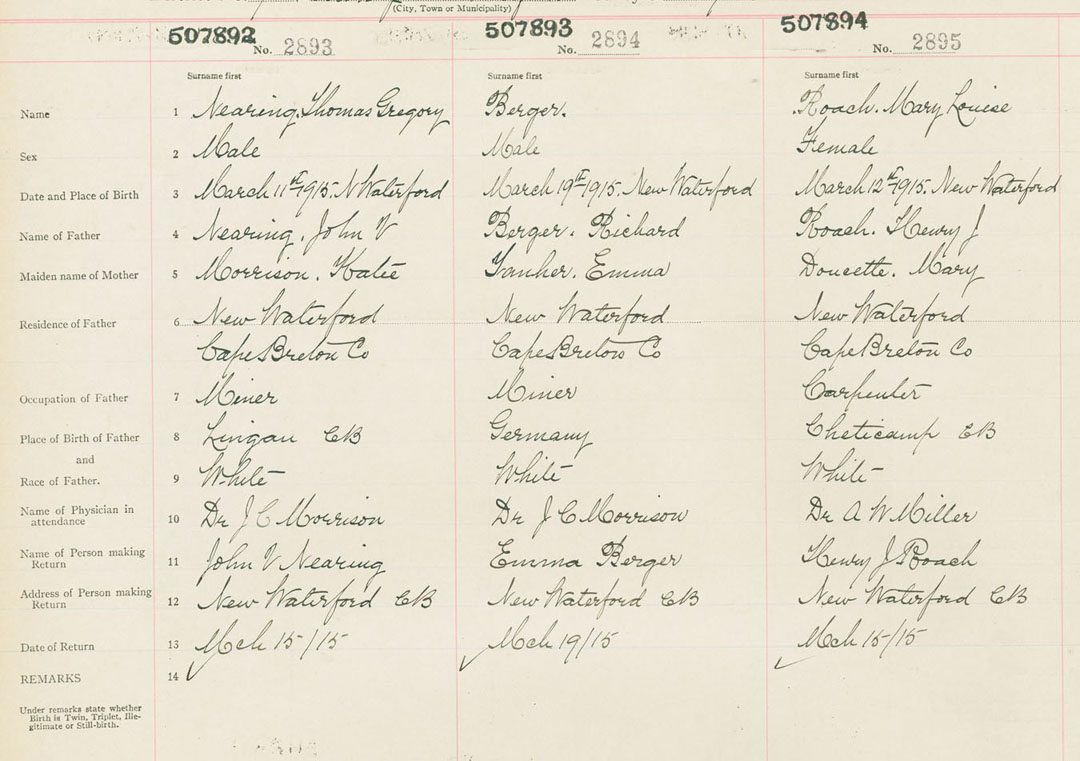 (City, Town or Municipality)
507892 No. 2893 507893 No. 2894 507894 No. 2895
Surname first Surname first Surname first
Name 1 Nearing. Thomas Gregory Berger. Roach. Mary Louise
Sex 2 Male Male Female
Date and Place of Birth 3 March 11th 1915. N Waterford March 19th 1915. New Waterford March 12th 1915. New Waterford
Name of Father 4 Nearing. John V Berger. Richard Roach. Henry J
Maiden name of Mother 5 Morrison. Katie Emma Doucette. Mary
Residence of Father 6 New Waterford New Waterford New Waterford
Cape Breton Co Cape Breton Co Cape Breton Co
Occupation of Father 7 Miner Miner Carpenter
Place of Birth of Father 8 Lingan CB Germany Cheticamp CB
and
Race of Father. 9 White White White
Name of Physician in
attendance 10 Dr J C Morrison Dr J C Morrison Dr A W Miller
Name of Person making
Return 11 John V Nearing Emma Berger Henry J Roach
Address of Person making
Return 12 New Waterford CB New Waterford CB New Waterford CB
Date of Return 13 Mch 15/15 Mch 19/15 Mch 15/15
REMARKS 14
Under remarks state whether
Birth is Twin, Triplet, Ille-
gitimate or Still-birth.